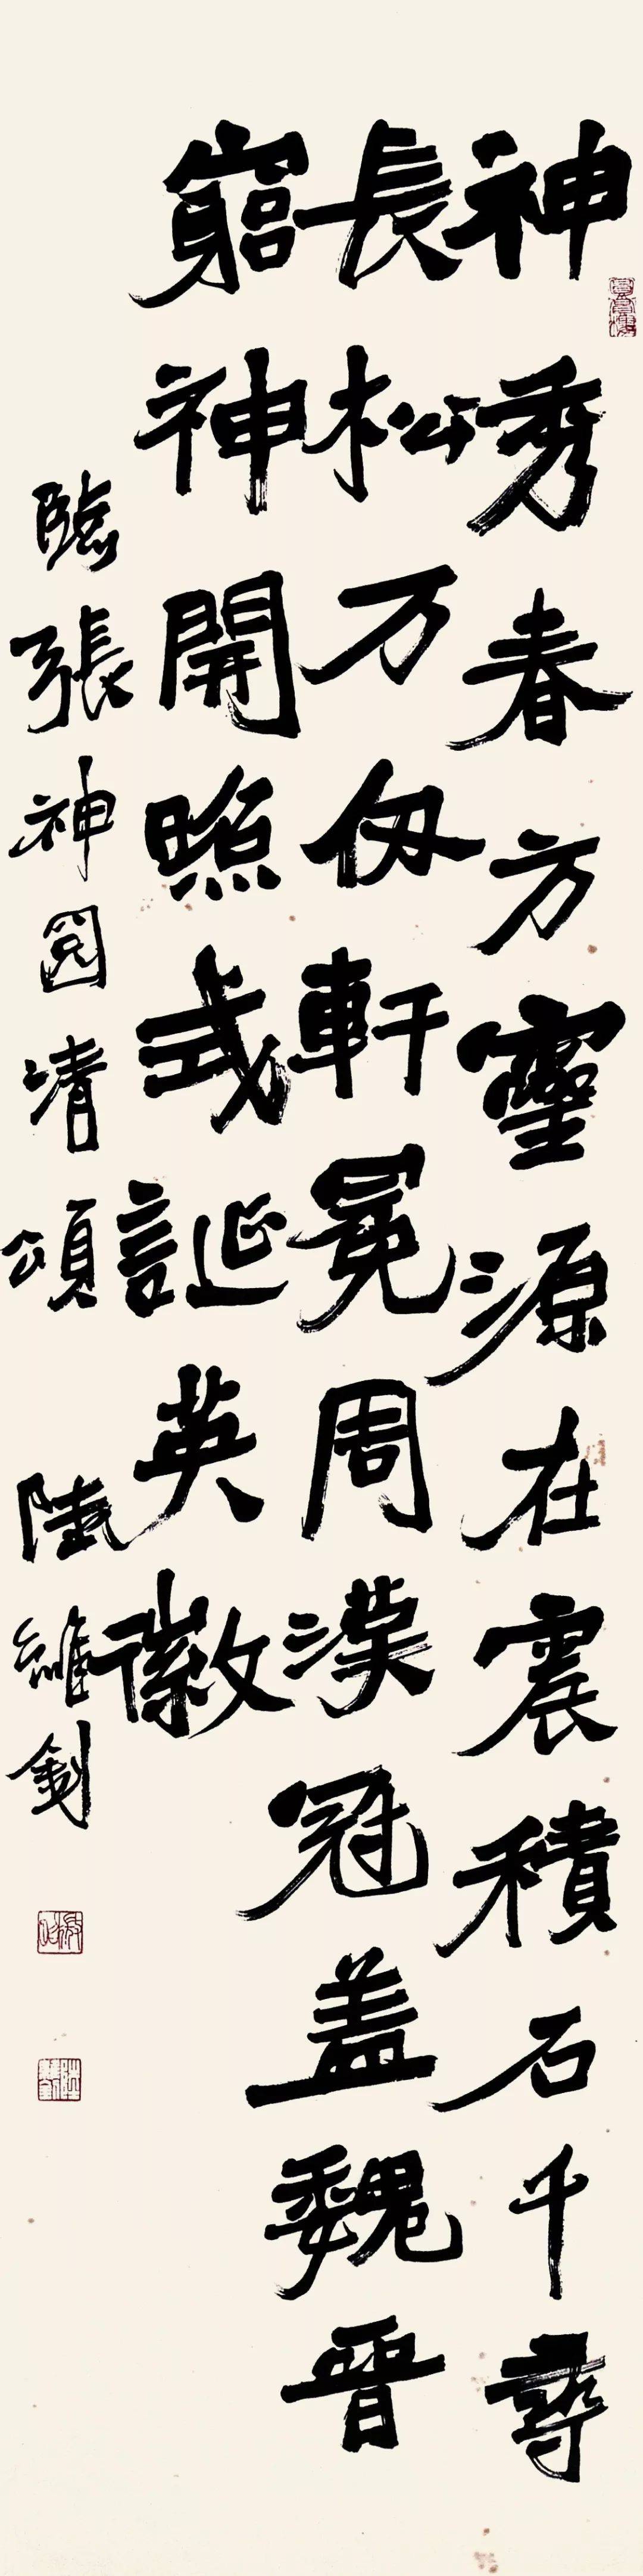 神秀春方靈源在震積石千尋
長松万仞軒冕周漢冠盖魏晉
窮神開照式誕英徽
臨張神囧清頌 陸維釗